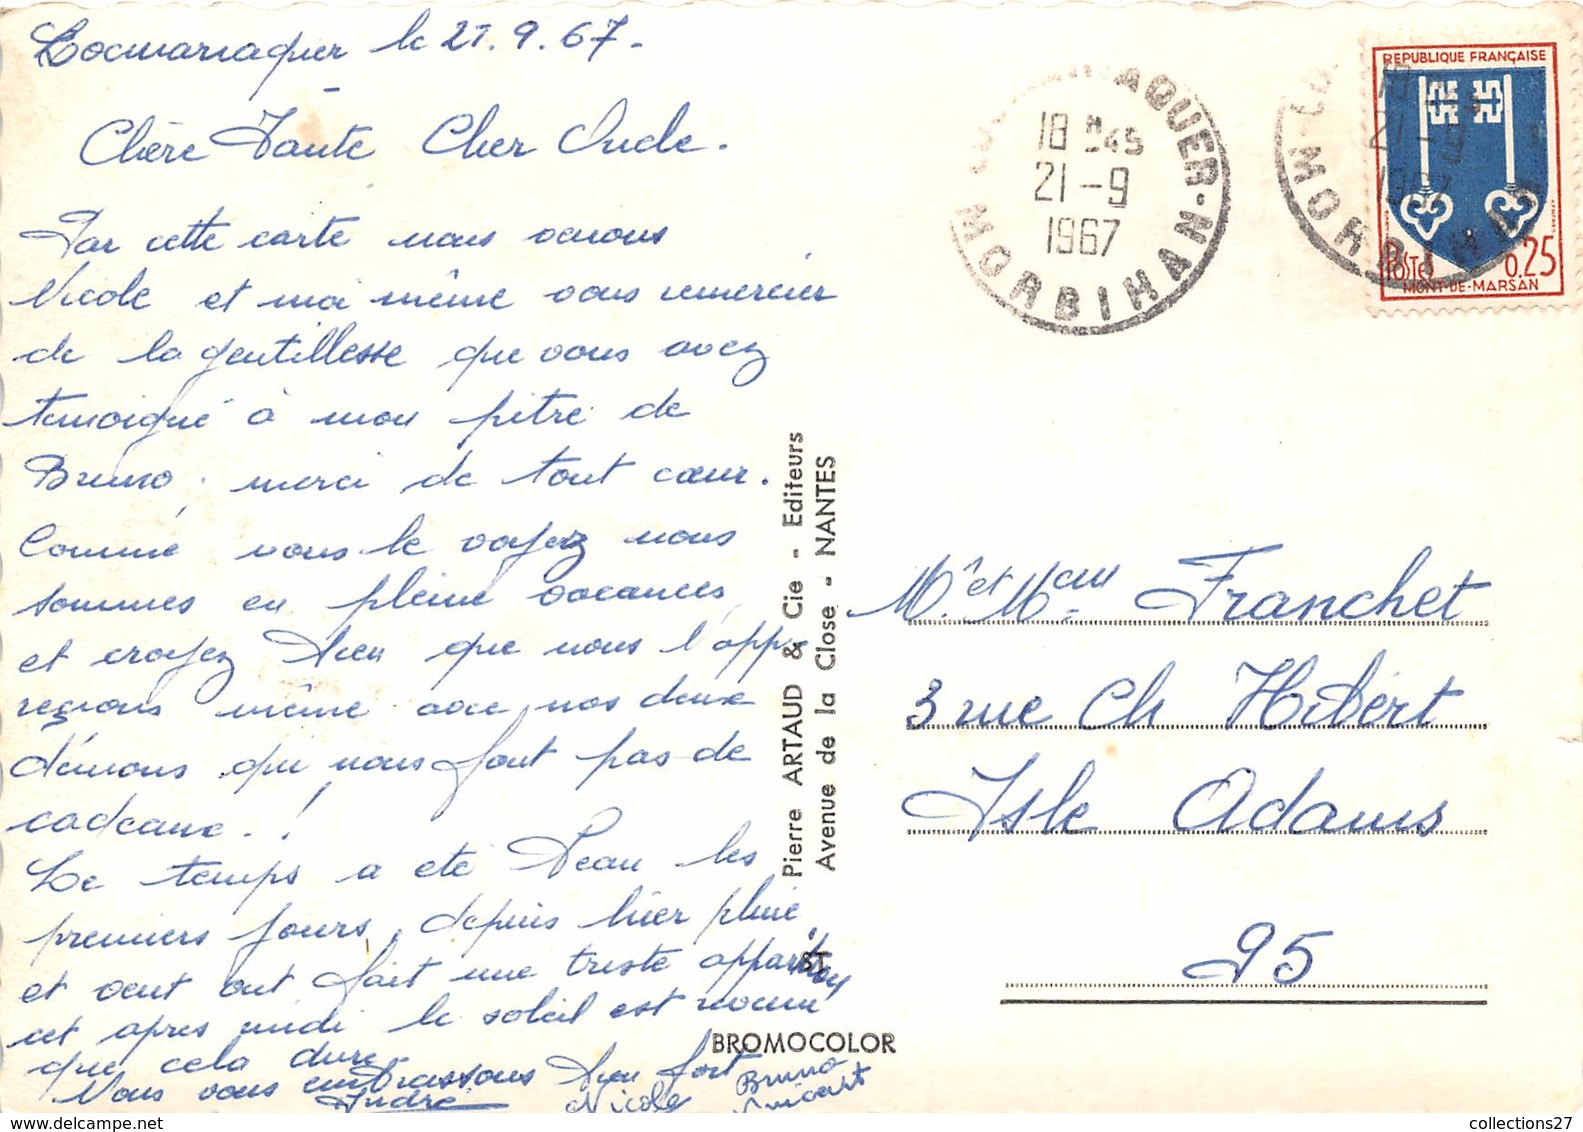 Locmariaquer le 21.9.67-
Chère Tante Cher Oncle.
Par cette carte nous venons
Nicole et moi même vous remercier
de la gentillesse que vous avez
temoigné à mon pitre de
Bruno, merci de tout cœur.
Comme vous le voyez nous
sommes en pleine vacances,
et croyez bien que nous l'app-
reçions même avec nos deux
démons qui nous font pas de
cadeaux-!
Le temps a été beau les
premiers jours, depuis hier pluie
et vent ont fait une triste apparition
cet apres midi le soleil est revenu
que cela dure-
Nous vous embrassons bien fort
André Nicole Bruno
Vincent
Pierre ARTAUD & Cie - Editeurs
Avenue de la Close - NANTES
BROMOCOLOR
AQUER - MORBIHAN -
18 H45
21-9
1967
18
21-9
1967
MORBIHAN
REPUBLIQUE FRANÇAISE
POSTES 0.25
MONT-DE-MARSAN
Mr et Mme Franchet
3 rue Ch Hibert
Isle Adams
95
collections27